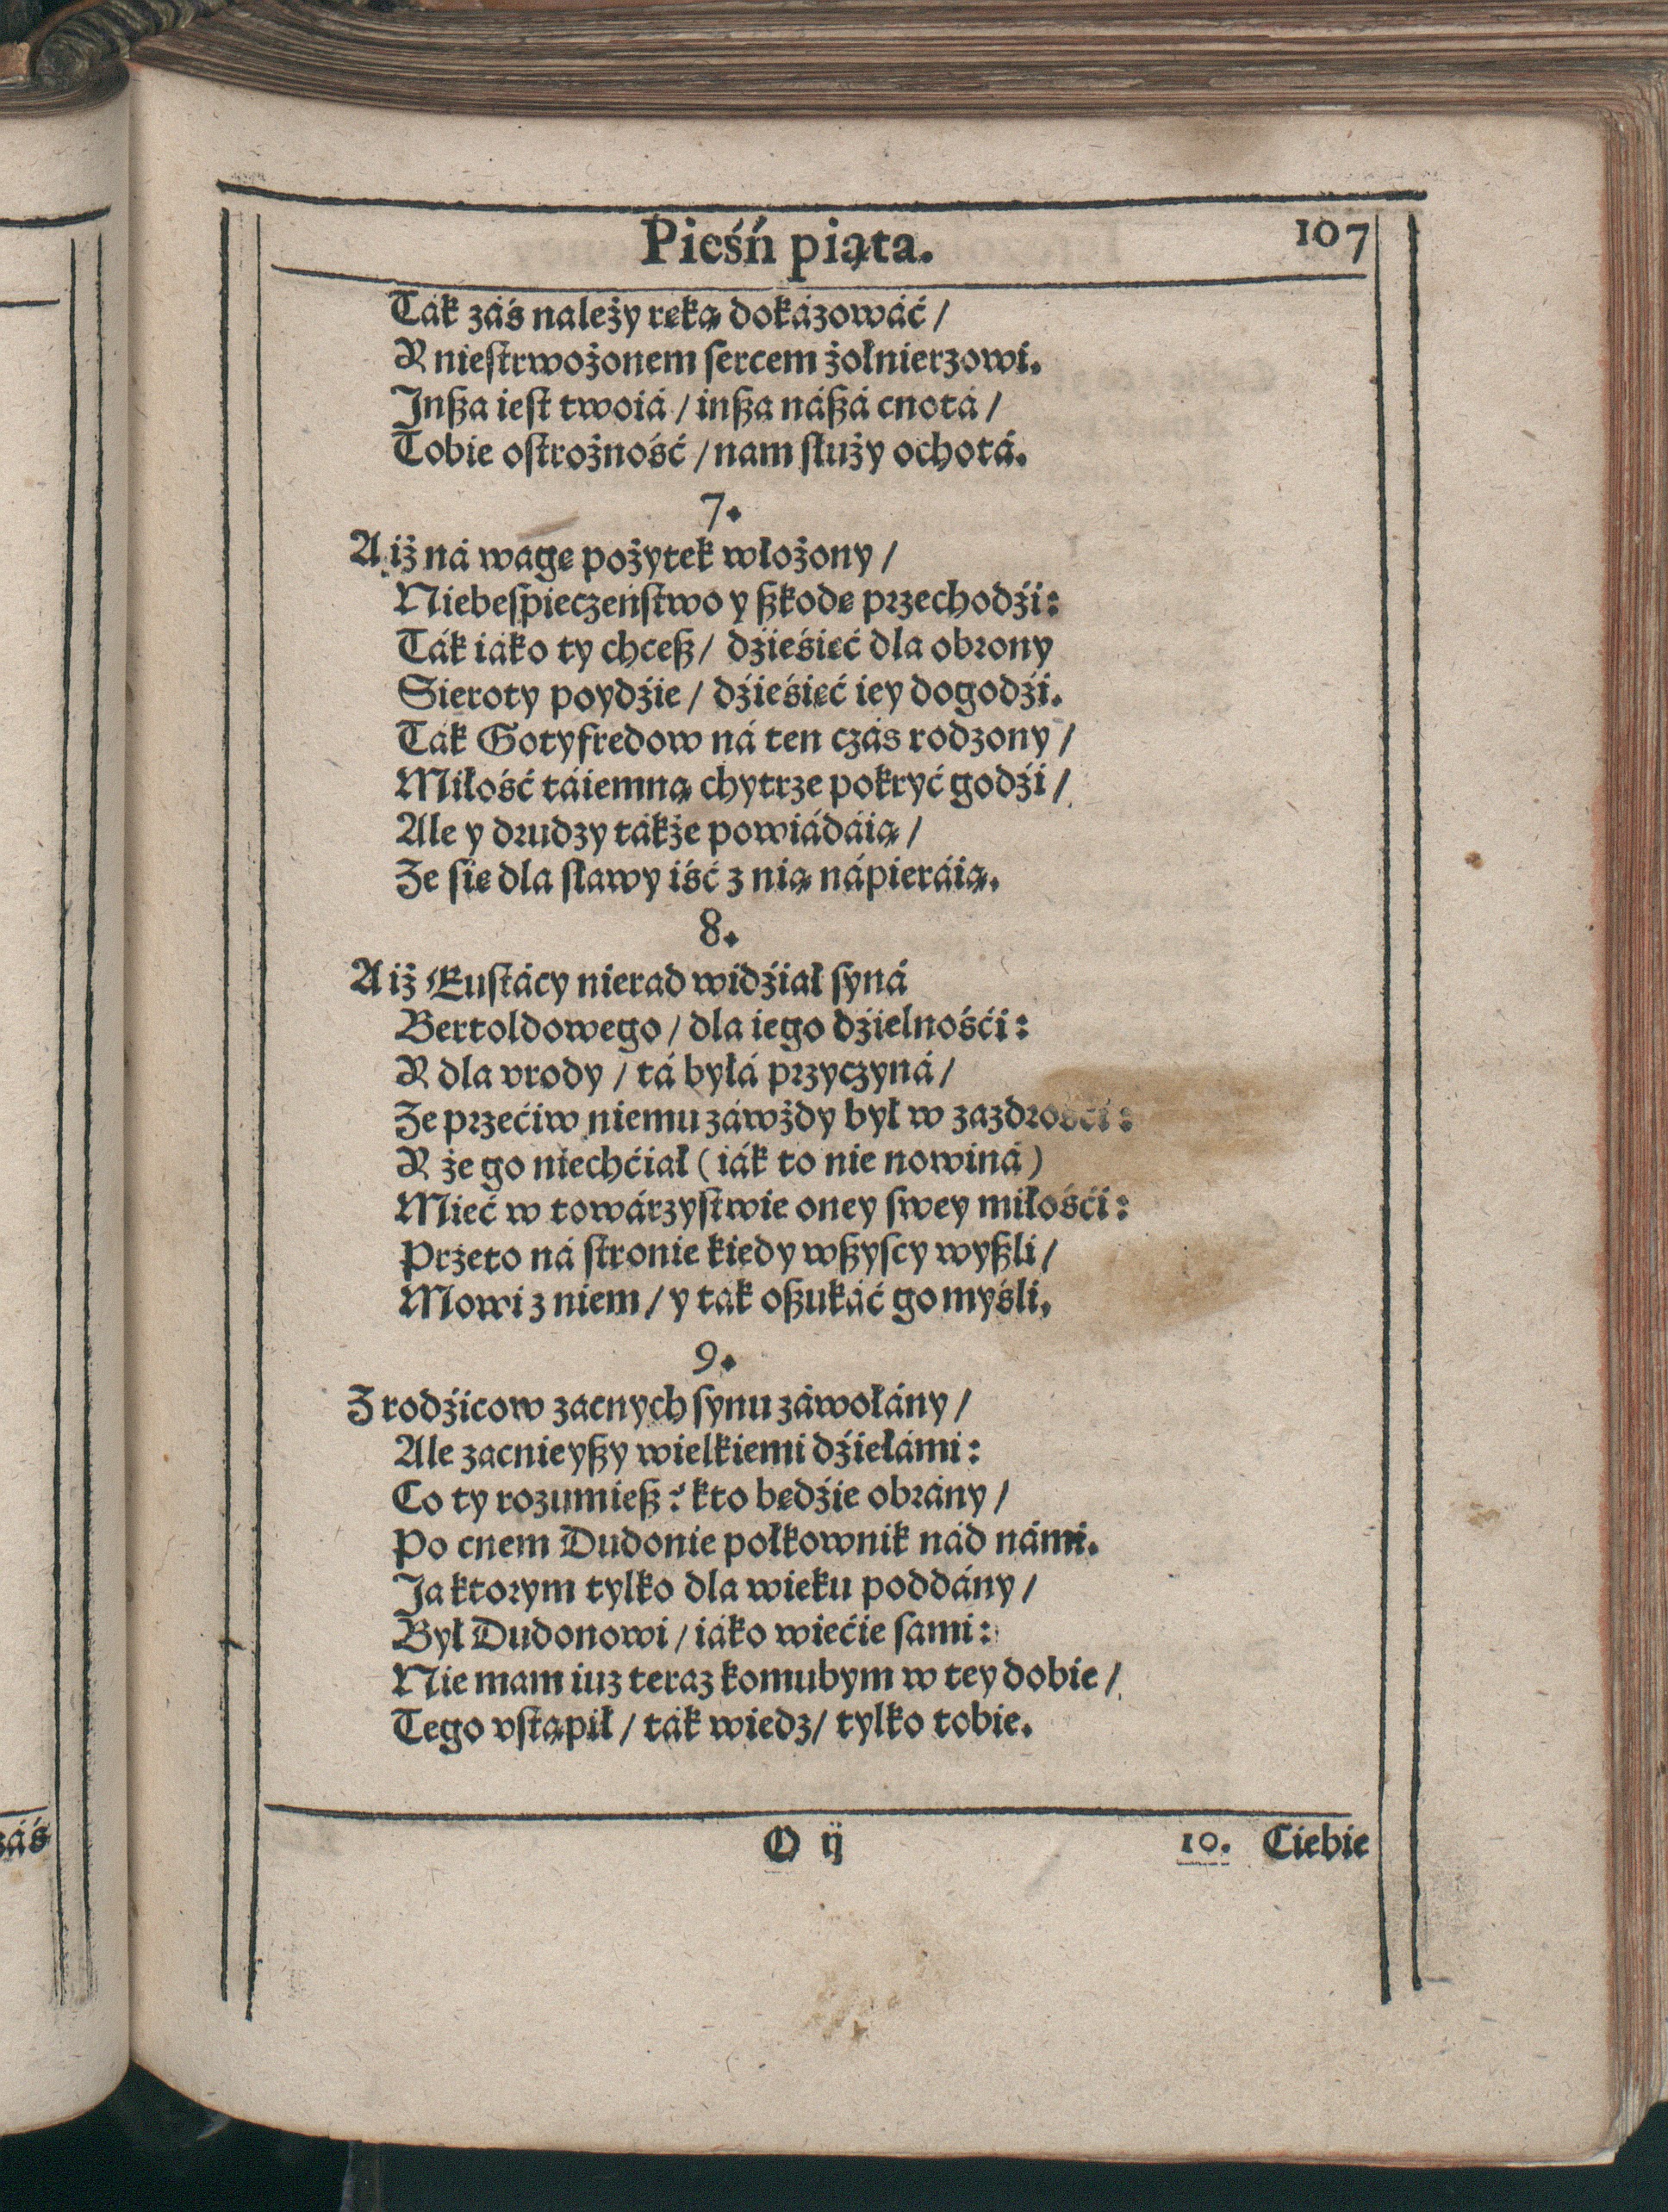 Pieśń piąta. 107
Ták záś należy ręką dokázowáć /
Y niestrwożonem sercem żołnierzowi.
Jnßa iest twoiá / inßa náßá cnotá /
Tobie ostrożność / nam służy ochotá.
7.
A iż ná wagę pożytek włożony /
Niebespieczeństwo y ßkodę przechodźi:
Ták iáko ty chceß / dźieśięć dla obrony
Sieroty poydźie / dźieśięć iey dogodźi.
Ták Gotyfredow ná ten czás rodzony /
Miłość táiemną chytrze pokryć godźi /
Ale y drudzy tákże powiádáią /
Ze się dla sławy iść z nią nápieráią.
8.
A iż Eustácy nierad widźiał syná
Bertoldowego / dla iego dźielnośći:
Y dla vrody / tá byłá przyczyná /
Ze przećiw niemu záwżdy był w zazdrośći:
Y że go niechćiał (iák to nie nowiná)
Mieć w towárzystwie oney swey miłośći:
Przeto ná stronie kiedy wßyscy wyßli /
Mowi z niem / y ták oßukáć go myśli.
9.
Z rodźicow zacnych synu záwołány /
Ale zacnieyßy wielkiemi dźiełámi:
Co ty rozumieß? kto będźie obrány /
Po cnem Dudonie połkownik nád námi.
Ja ktorym tylko dla wieku poddány /
Był Dudonowi / iáko wiećie sami:
Nie mam iuz teraz komubym w tey dobie /
Tego vstąpił / ták wiedz / tylko tobie.
O ij 10. Ciebie
záś